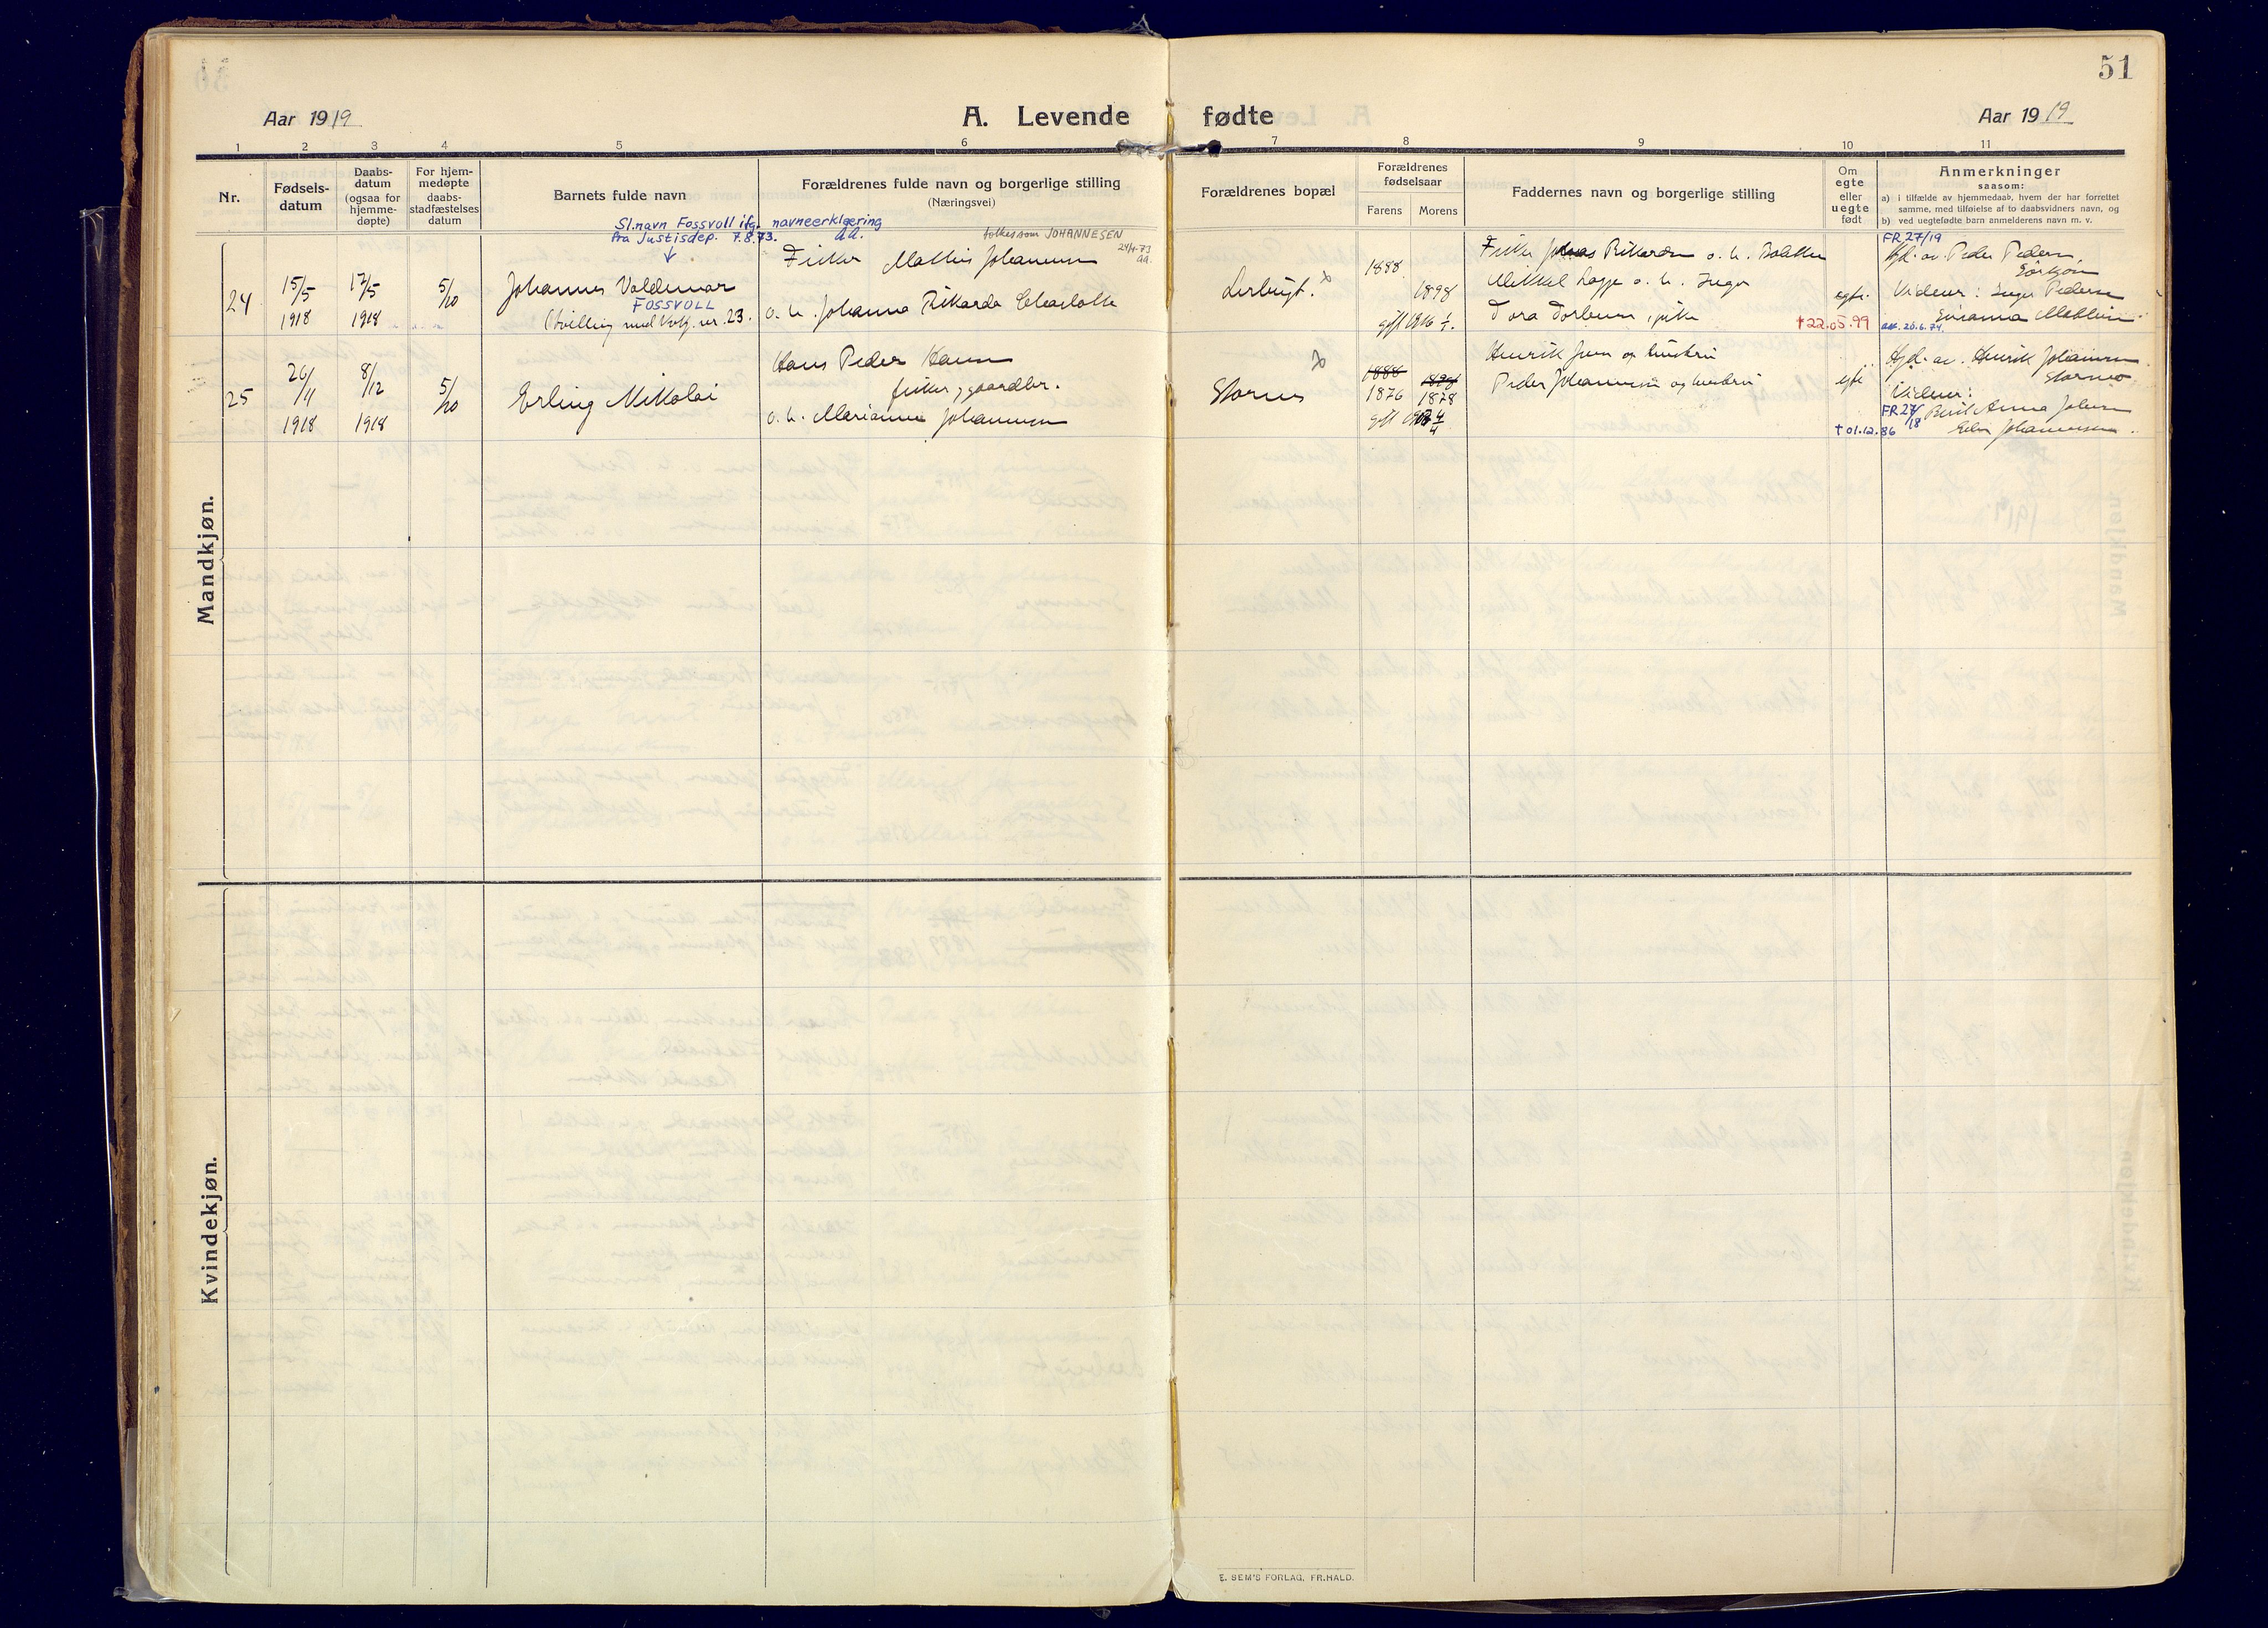 51
Aar 1919
A. Levende fødte
Aar 1919
1 2 3 4 5 6 7 8 9 10 11
Nr.
Fødsels-
datum
Daabs-
datum
(ogsaa for
hjemme-
døpte)
For hjem-
medøpte
daabs-
stadfæstelses
datum
Barnets fulde navn
Forældrenes fulde navn og borgerlige stilling
(Næringsvei)
Forældrenes bopæl
Forældrenes
fødselsaar
Farens
Morens
Faddernes navn og borgerlige stilling
Om
egte
eller
uegte
født
Anmerkninger
saasom:
a) i tilfælde av hjemmedaab, hvem der har forrettet
samme, med tilføielse af to daabsvidners navn, og
b) ved uegtefødte barn anmelderens navn m. v.
Mandkjøn.
Sl.navn Fossvoll ifg. navneerklæring
fra Justisdep. 7.8.73. aa.
24
15/5
1918
17/5
1918
5/10
Johannes Valdemar
FOSSVOLL
(tvilling med kvkj. nr. 23.
tolkes som JOHANNESEN
24/4-73
aa.
Fisker Mathis Johannesen
o. h. Johanna Rikarda Charlotte
Lerbugt. x
1888
1898
gift 1916
Fisker Johas Rikardsen o. h.
Mikkel o. h. Inger
Dora pike
egte.
† 22.05.99
FR 27/19
Hjd. av. Peder Pedersen,
Vidner: Inger Pedersen
aa. 20.6.74.
25
26/11
1918
8/12
1918
5/10
Erling Mikolai
Hans Peder Hansen
fisker, gaardbr.
o. h. Marianne Johannesen
x
Stornes
1888 1898
1876 1878
gift
Henrik Jensen og hustru
Peder Johannesen og hustru
egte
† 01.12.86
Hjd. av. Henrik Johannesen
Vidner:
FR 27/18
Berit Anna Johnsen
Johannesen.
Kvindekjøn.
E. SEM'S FORLAG, FR.HALD.